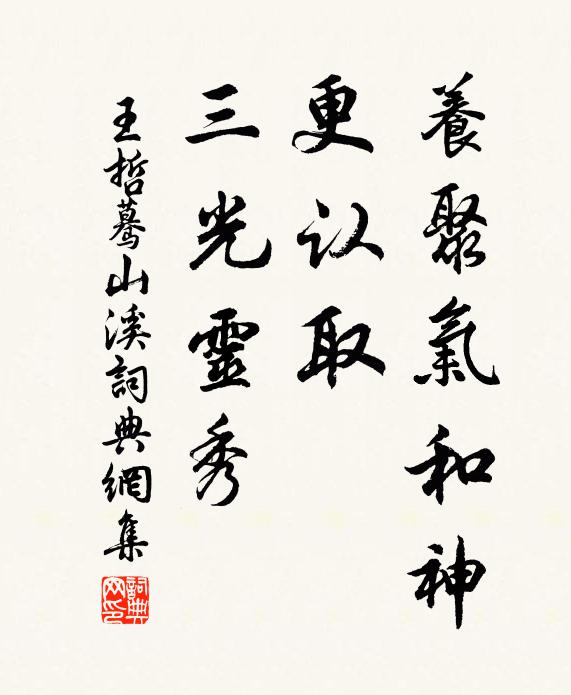 養聚氣和神
更认取
三光靈秀
王哲蓦山溪詞典網集
詞典网印